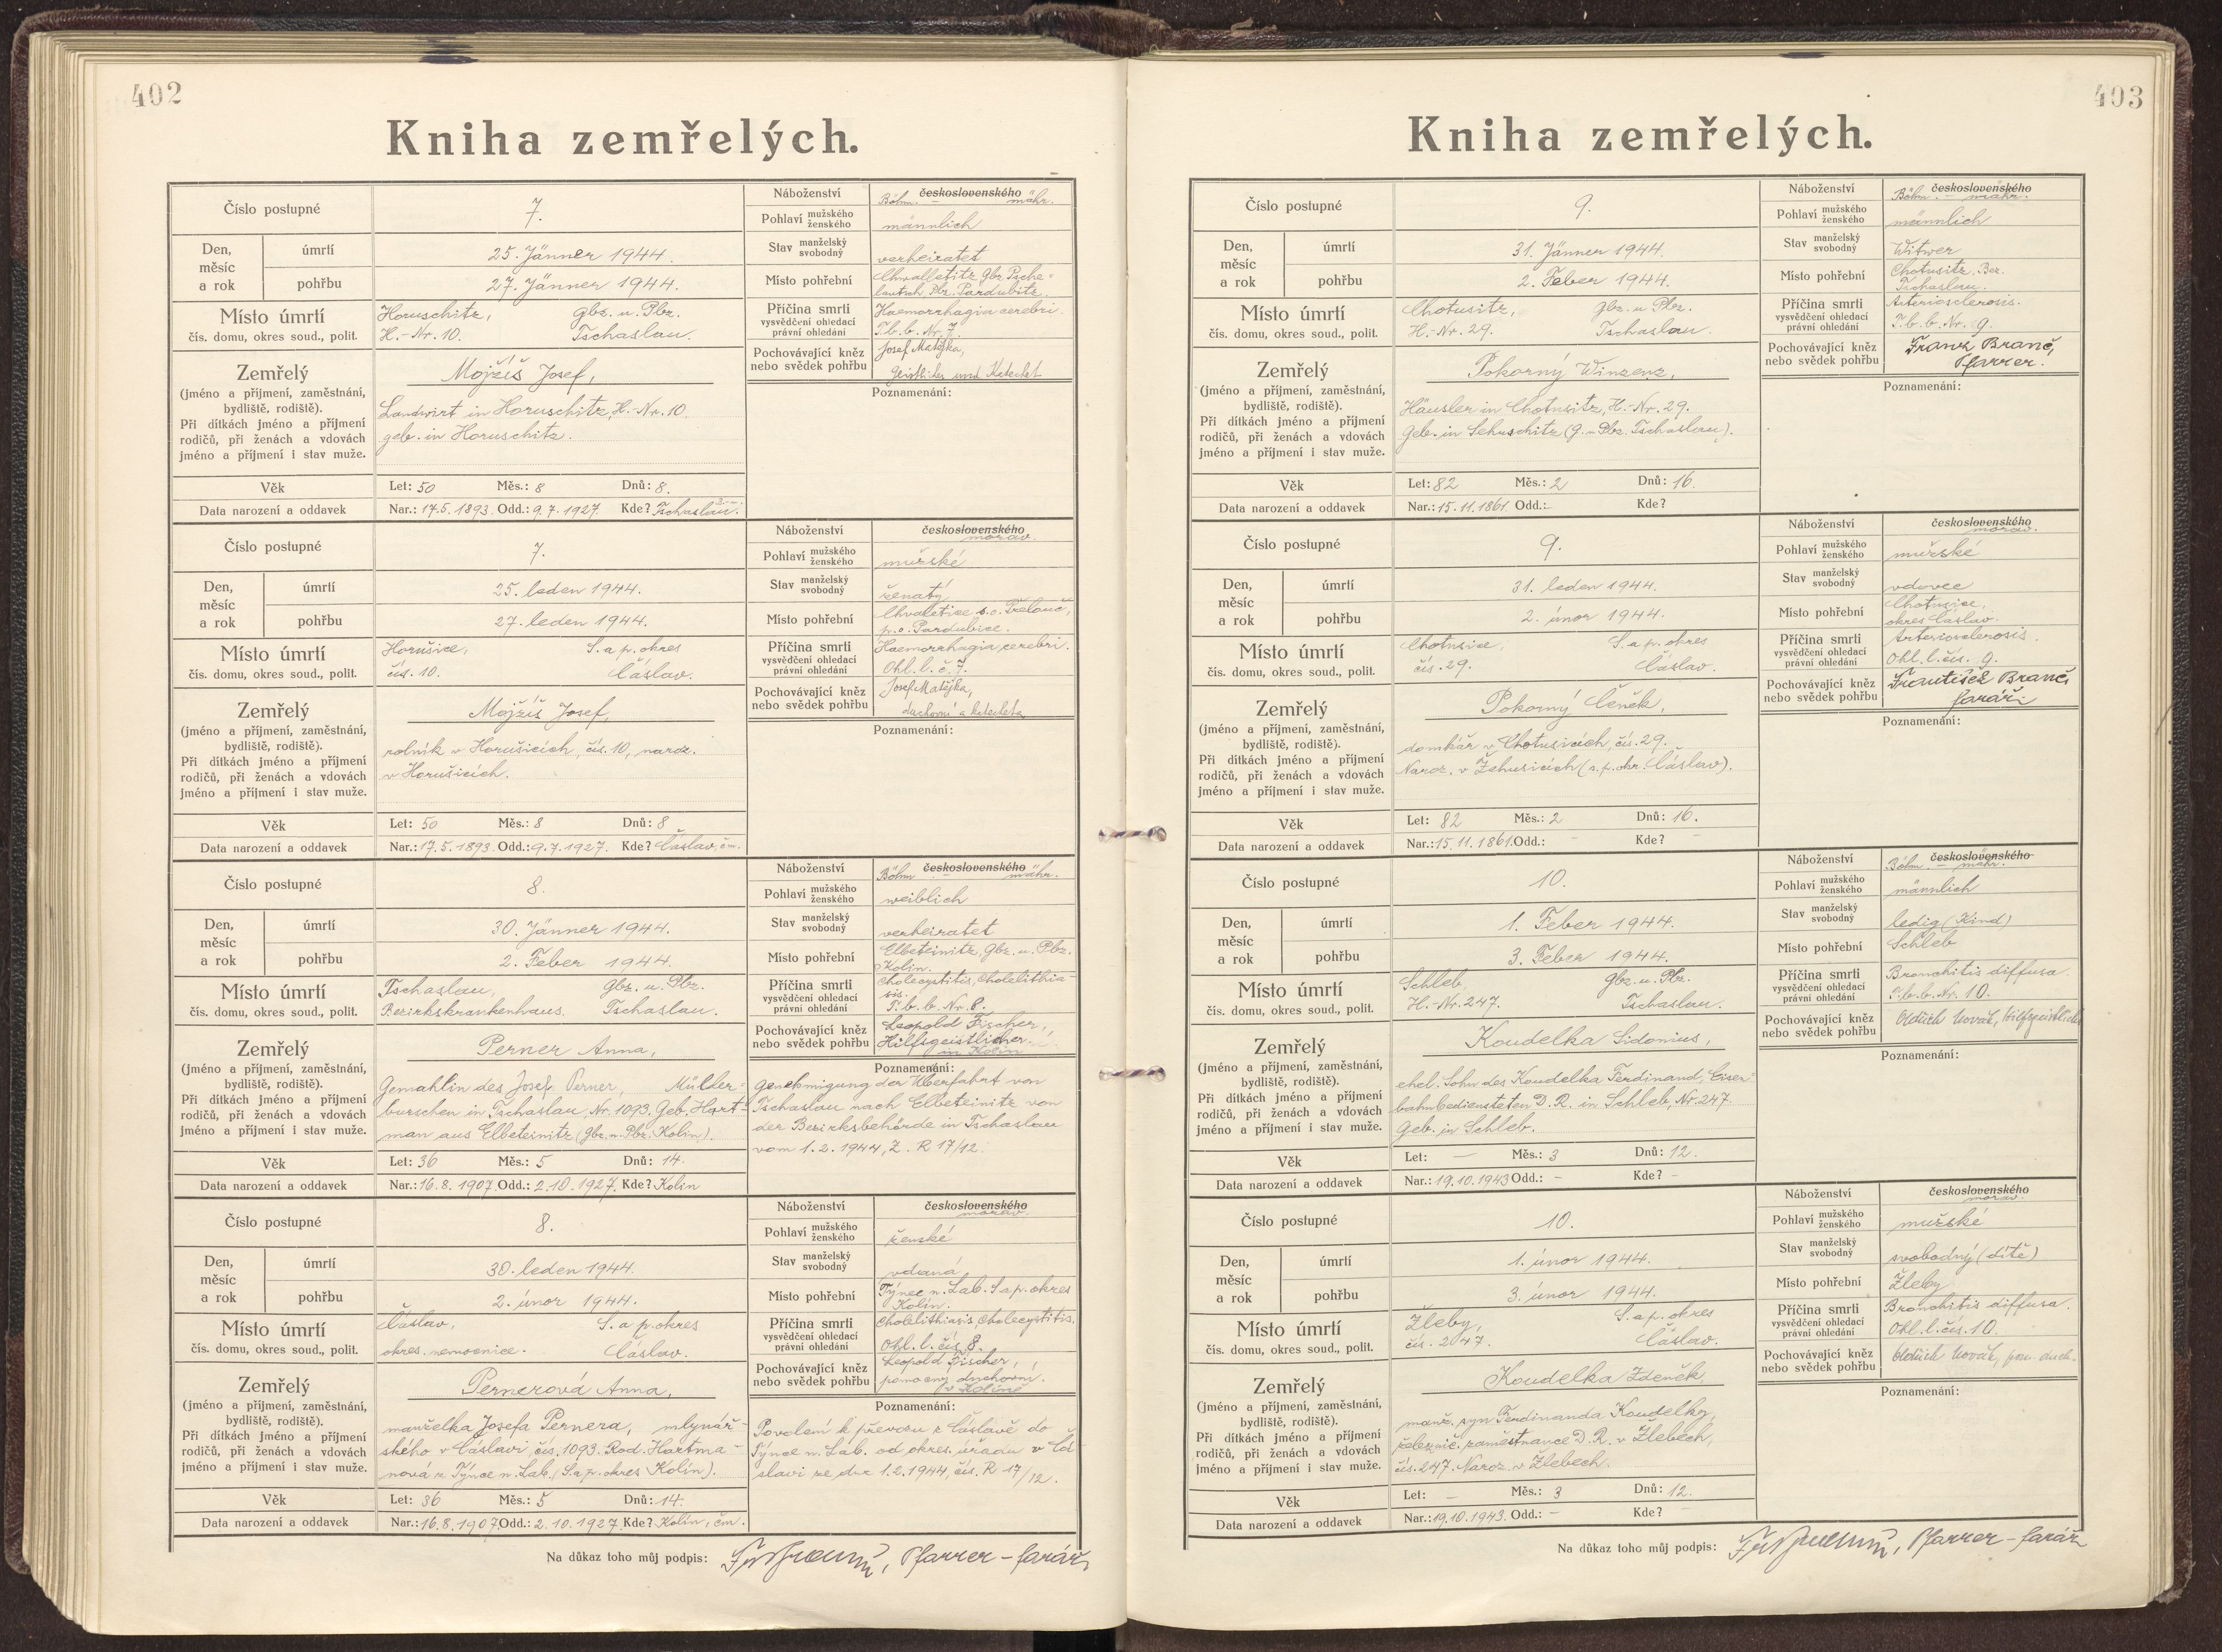 402
Kniha zemřelých.
Číslo postupné 7.
Náboženství československého Böhm. – mähr.
Pohlaví mužského ženského männlich
Stav manželský svobodný verheiratet
Den, měsíc a rok úmrtí 25. Jänner 1944.
pohřbu 27. Jänner 1944.
Místo pohřební Chwalletitz Gbz. Psche-
lautsch Pbz. Pardubitz.
Místo úmrtí
čís. domu, okres soud., polit.
Horuschitz, Gbz. u. Pbz.
H.-Nr. 10. Tschaslau.
Příčina smrti
vysvědčení ohledací
právní ohledání
Haemorrhagia cerebri.
T. b. b. Nr. 7.
Pochovávající kněz
nebo svědek pohřbu
Josef Matějka,
Geistlicher und Katechet
Zemřelý
(jméno a příjmení, zaměstnání,
bydliště, rodiště).
Při dítkách jméno a příjmení
rodičů, při ženách a vdovách
jméno a příjmení i stav muže.
Mojžíš Josef,
Landwirt in Horuschitz, H.-Nr. 10.
geb. in Horuschitz.
Poznamenání:
Věk Let: 50 Měs.: 8 Dnů: 8.
Data narození a oddavek Nar.: 17.5.1893. Odd.: 9.7.1927. Kde? Tschaslau.
Číslo postupné 7.
Náboženství československého morav.
Pohlaví mužského ženského mužské
Stav manželský svobodný ženatý
Den, měsíc a rok úmrtí 25. leden 1944.
pohřbu 27. leden 1944.
Místo pohřební Chvaletice s.o. Přelouč,
p.o. Pardubice.
Místo úmrtí
čís. domu, okres soud., polit.
Horušice, S. a p. okres
čís. 10. Čáslav.
Příčina smrti
vysvědčení ohledací
právní ohledání
Haemorrhagia cerebri.
Ohl. l. č. 7.
Pochovávající kněz
nebo svědek pohřbu
Josef Matějka,
duchovní a katecheta
Zemřelý
(jméno a příjmení, zaměstnání,
bydliště, rodiště).
Při dítkách jméno a příjmení
rodičů, při ženách a vdovách
jméno a příjmení i stav muže.
Mojžíš Josef,
rolník v Horušicích, čís. 10, naroz.
v Horušicích.
Poznamenání:
Věk Let: 50 Měs.: 8 Dnů: 8
Data narození a oddavek Nar.: 17.5.1893. Odd.: 9.7.1927. Kde? Čáslav,
Číslo postupné 8.
Náboženství československého Böhm. – mähr.
Pohlaví mužského ženského weiblich
Stav manželský svobodný verheiratet
Den, měsíc a rok úmrtí 30. Jänner 1944.
pohřbu 2. Feber 1944.
Místo pohřební Elbeteinitz, Gbz. u. Pbz.
Kolin.
Místo úmrtí
čís. domu, okres soud., polit.
Tschaslau, Gbz. u. Pbz.
Bezirkskrankenhaus. Tschaslau.
Příčina smrti
vysvědčení ohledací
právní ohledání
Cholecystitis, Cholelithia-
sis.
T. b. b. Nr. 8.
Pochovávající kněz
nebo svědek pohřbu
Leopold Fischer,
Hilfsgeistlicher
in Kolin
Zemřelý
(jméno a příjmení, zaměstnání,
bydliště, rodiště).
Při dítkách jméno a příjmení
rodičů, při ženách a vdovách
jméno a příjmení i stav muže.
Perner Anna,
Gemahlin des Josef Perner, Müller-
burschen in Tschaslau, Nr. 1093. Geb. Hart-
man aus Elbeteinitz (Gbz. u. Pbz. Kolin).
Poznamenání:
Genehmigung der Überfahrt von
Tschaslau nach Elbeteinitz von
der Bezirksbehörde in Tschaslau
vom 1.2.1944, Z. R 17/12.
Věk Let: 36 Měs.: 5 Dnů: 14.
Data narození a oddavek Nar.: 16.8.1907. Odd.: 2.10.1927. Kde? Kolin
Číslo postupné 8.
Náboženství československého morav.
Pohlaví mužského ženského ženské
Stav manželský svobodný vdaná
Den, měsíc a rok úmrtí 30. leden 1944.
pohřbu 2. únor 1944.
Místo pohřební Týnec n. Lab. S. a p. okres
Kolín.
Místo úmrtí
čís. domu, okres soud., polit.
Čáslav, S. a p. okres
okres. nemocnice. Čáslav.
Příčina smrti
vysvědčení ohledací
právní ohledání
Cholelithiasis, Cholecystitis,
Ohl. l. čís. 8.
Pochovávající kněz
nebo svědek pohřbu
Leopold Fischer,
pomocný duchovní
v Kolíně
Zemřelý
(jméno a příjmení, zaměstnání,
bydliště, rodiště).
Při dítkách jméno a příjmení
rodičů, při ženách a vdovách
jméno a příjmení i stav muže.
Pernerová Anna,
manželka Josefa Pernera, mlynář-
ského v Čáslavi čís. 1093. Roz. Hartma-
nová z Týnce n. Lab. (S. a p. okres Kolín).
Poznamenání:
Povolení k převozu z Čáslavě do
Týnce n. Lab. od okres. úřadu v Čá-
slavi ze dne 1.2.1944, čís. R 17/12.
Věk Let: 36 Měs.: 5 Dnů: 14.
Data narození a oddavek Nar.: 16.8.1907. Odd.: 2.10.1927. Kde? Kolín, čm.
Na důkaz toho můj podpis: Pfarrer – farář
403
Kniha zemřelých.
Číslo postupné 9.
Náboženství československého Böhm. – mähr.
Pohlaví mužského ženského männlich
Stav manželský svobodný Witwer
Den, měsíc a rok úmrtí 31. Jänner 1944.
pohřbu 2. Feber 1944.
Místo pohřební Chotusitz, Bez.
Tschaslau.
Místo úmrtí
čís. domu, okres soud., polit.
Chotusitz, Gbz. u. Pbz.
H.-Nr. 29. Tschaslau.
Příčina smrti
vysvědčení ohledací
právní ohledání
Arteriosclerosis.
T. b. b. Nr. 9.
Pochovávající kněz
nebo svědek pohřbu
Franz Branč,
Pfarrer.
Zemřelý
(jméno a příjmení, zaměstnání,
bydliště, rodiště).
Při dítkách jméno a příjmení
rodičů, při ženách a vdovách
jméno a příjmení i stav muže.
Pokorný Winzenz,
Häusler in Chotusitz, H.-Nr. 29.
Geb. in Sehuschitz (G. u. Pbz. Tschaslau).
Poznamenání:
Věk Let: 82 Měs.: 2 Dnů: 16.
Data narození a oddavek Nar.: 15.11.1861. Odd.: – Kde?
Číslo postupné 9.
Náboženství československého morav.
Pohlaví mužského ženského mužské
Stav manželský svobodný vdovec
Den, měsíc a rok úmrtí 31. leden 1944.
pohřbu 2. únor 1944.
Místo pohřební Chotusice,
okres Čáslav.
Místo úmrtí
čís. domu, okres soud., polit.
Chotusice, S. a p. okres
čís. 29. Čáslav.
Příčina smrti
vysvědčení ohledací
právní ohledání
Arteriosclerosis.
Ohl. l. čís. 9.
Pochovávající kněz
nebo svědek pohřbu
František Branč
farář.
Zemřelý
(jméno a příjmení, zaměstnání,
bydliště, rodiště).
Při dítkách jméno a příjmení
rodičů, při ženách a vdovách
jméno a příjmení i stav muže.
Pokorný Čeněk,
domkář v Chotusicích, čís. 29.
Naroz. v Žehusicích (s. p. okr. Čáslav).
Poznamenání:
Věk Let: 82 Měs.: 2 Dnů: 16.
Data narození a oddavek Nar.: 15.11.1861. Odd.: – Kde? –
Číslo postupné 10.
Náboženství československého Böhm. – mähr.
Pohlaví mužského ženského männlich
Stav manželský svobodný ledig (Kind)
Den, měsíc a rok úmrtí 1. Feber 1944.
pohřbu 3. Feber 1944.
Místo pohřební Schleb
Místo úmrtí
čís. domu, okres soud., polit.
Schleb, Gbz. u. Pbz.
H.-Nr. 247. Tschaslau.
Příčina smrti
vysvědčení ohledací
právní ohledání
Bronchitis diffusa.
T. b. b. Nr. 10.
Pochovávající kněz
nebo svědek pohřbu
Oldřich Novák, Hilfsgeistlicher
Zemřelý
(jméno a příjmení, zaměstnání,
bydliště, rodiště).
Při dítkách jméno a příjmení
rodičů, při ženách a vdovách
jméno a příjmení i stav muže.
Koudelka Sidonius,
ehel. Sohn des Koudelka Ferdinand, Eisen-
bahnbediensteten D. R. in Schleb, Nr. 247.
Geb. in Schleb.
Poznamenání:
Věk Let: – Měs.: 3 Dnů: 12.
Data narození a oddavek Nar.: 19.10.1943 Odd.: – Kde? –
Číslo postupné 10.
Náboženství československého morav.
Pohlaví mužského ženského mužské
Stav manželský svobodný svobodný (dítě)
Den, měsíc a rok úmrtí 1. únor 1944.
pohřbu 3. únor 1944.
Místo pohřební Žleby
Místo úmrtí
čís. domu, okres soud., polit.
Žleby, S. a p. okres
čís. 247. Čáslav.
Příčina smrti
vysvědčení ohledací
právní ohledání
Bronchitis diffusa.
Ohl. l. čís. 10.
Pochovávající kněz
nebo svědek pohřbu
Oldřich Novák, pom. duch.
Zemřelý
(jméno a příjmení, zaměstnání,
bydliště, rodiště).
Při dítkách jméno a příjmení
rodičů, při ženách a vdovách
jméno a příjmení i stav muže.
Koudelka Zdeněk
manž. syn Ferdinanda Koudelky,
železnič. zaměstnance D. R. v Žlebech,
čís. 247. Naroz. v Žlebech.
Poznamenání:
Věk Let: – Měs.: 3 Dnů: 12.
Data narození a oddavek Nar.: 19.10.1943. Odd.: – Kde? –
Na důkaz toho můj podpis: Pfarrer – farář